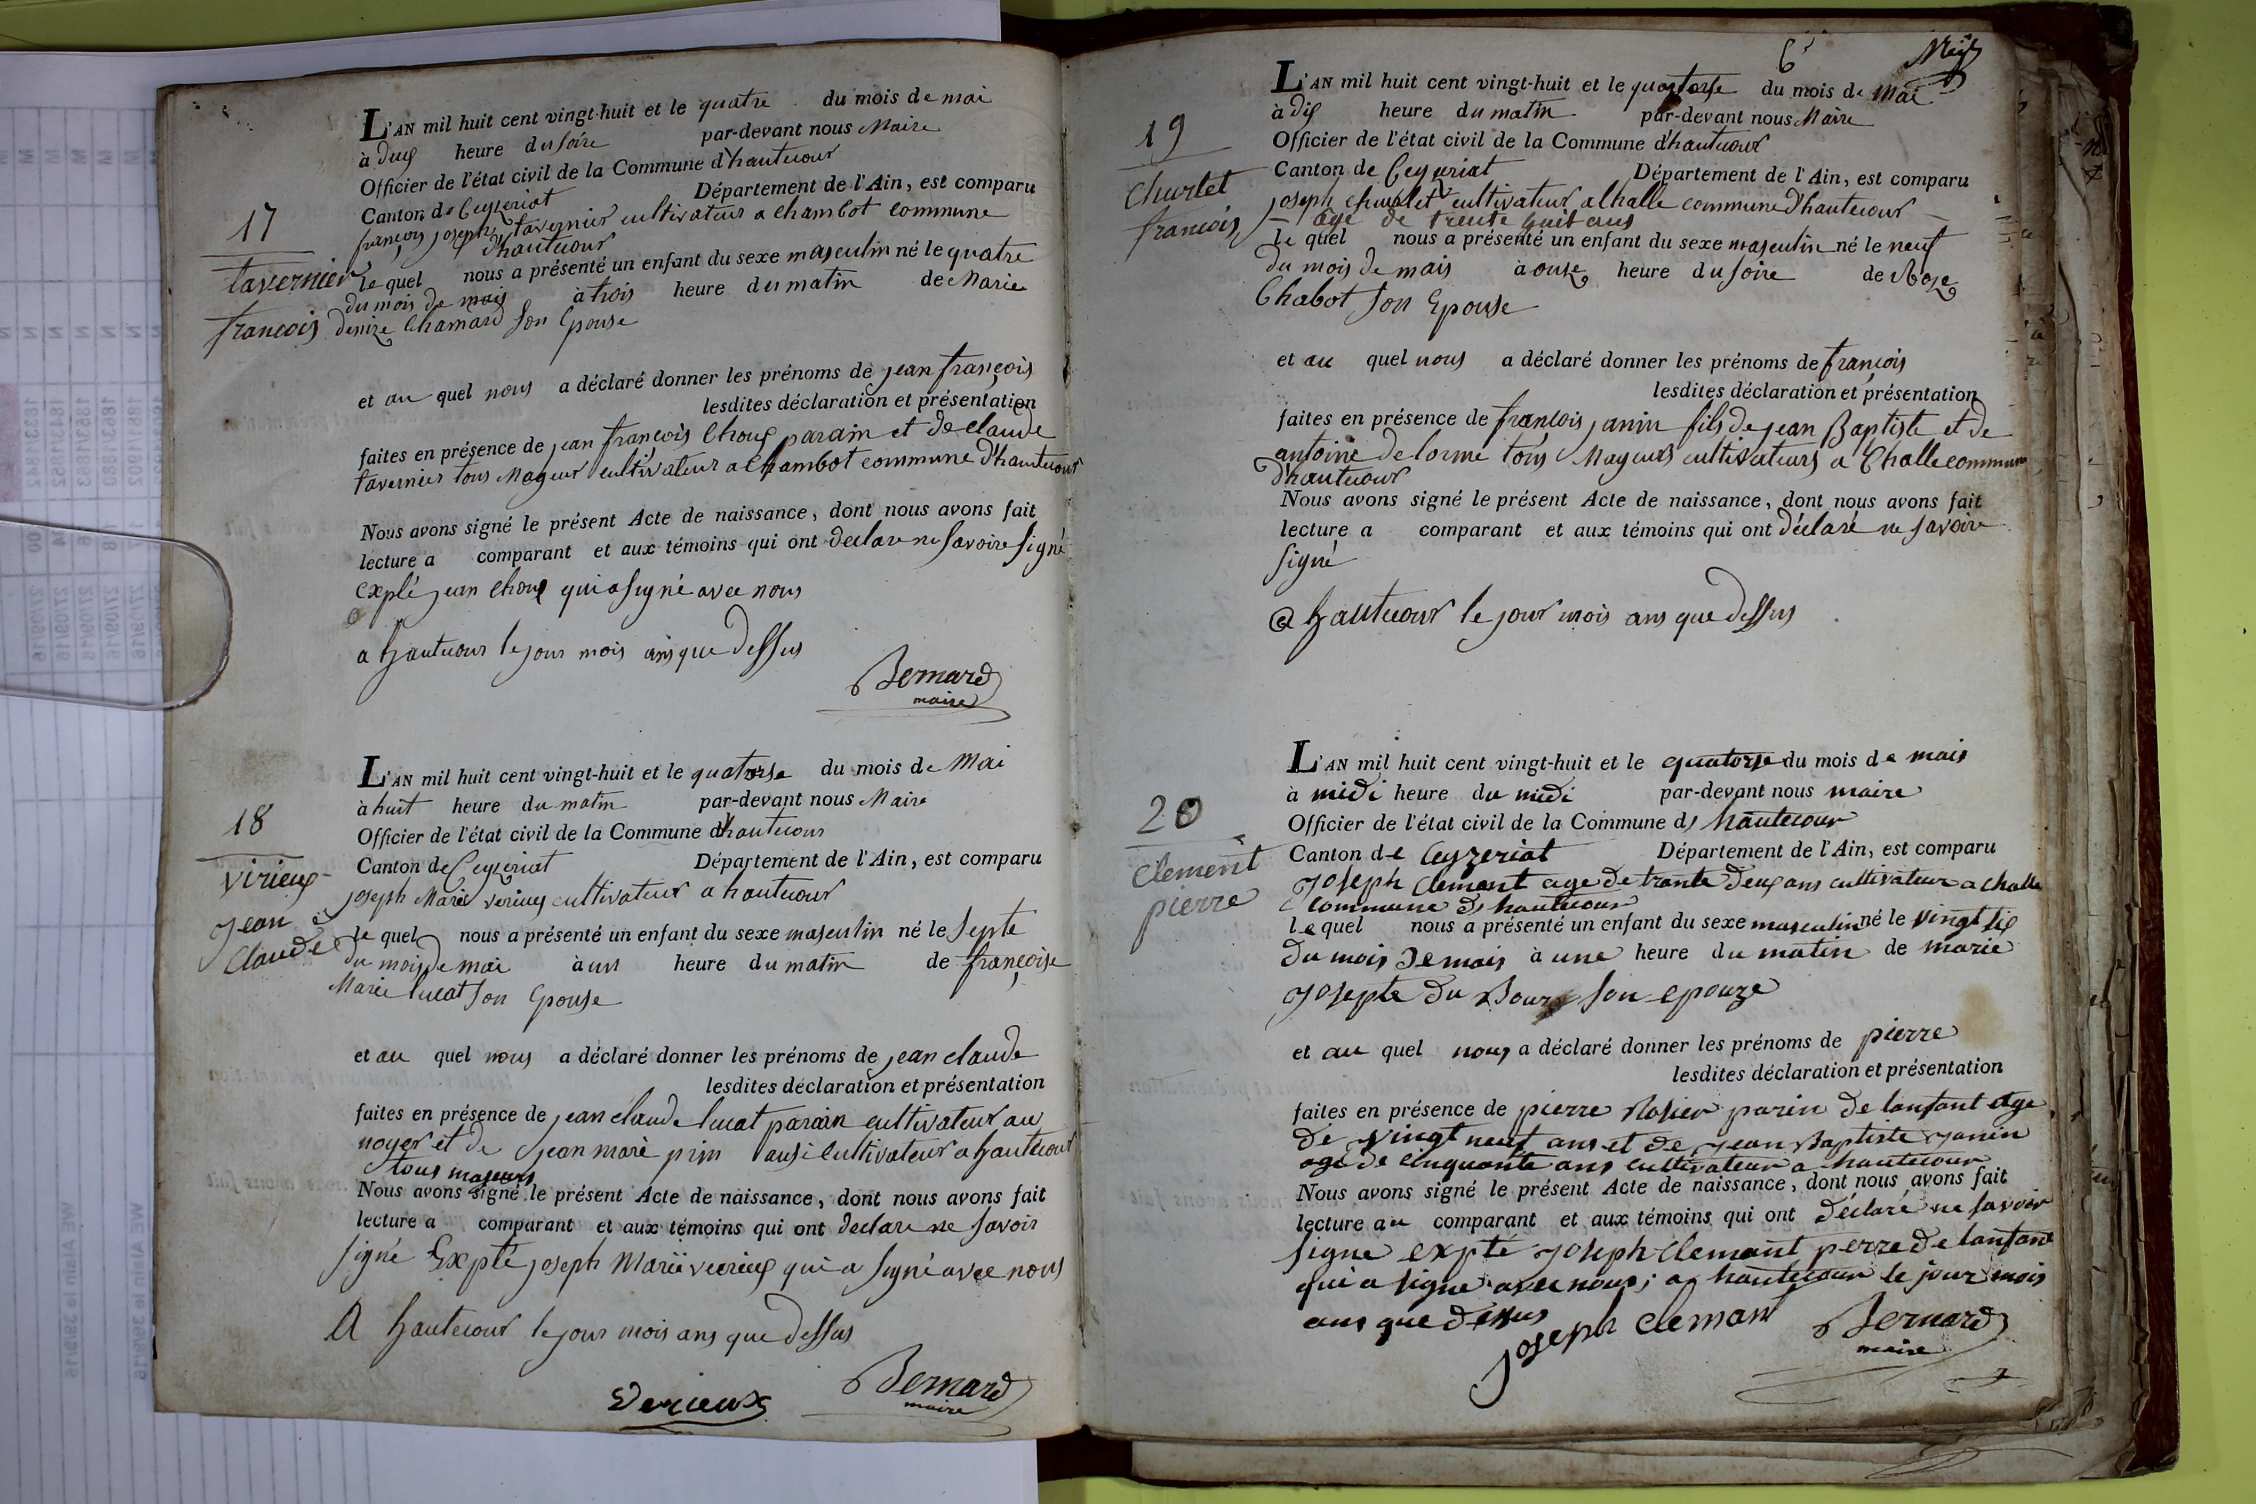 17
tavernier
francois
L'AN mil huit cent vingt-huit et le quatre du mois de mai
à deux heure du soire par-devant nous Maire
Officier de l'état civil de la Commune d'hautecour
Canton de Ceyzeriat Département de l'Ain, est comparu
françois joseph tavernier cultivateur a chambot commune
d'hautecour
le quel nous a présenté un enfant du sexe masculin né le quatre
du mois de mais à trois heure du matin de Marie
denize Chamard son Epouse
et au quel nous a déclaré donner les prénoms de jean françois
lesdites déclaration et présentation
faites en présence de jean francois Choux parain et de claude
tavernier tous Mageur cultivateur a Chambot commune d'hautecour
Nous avons signé le présent Acte de naissance, dont nous avons fait
lecture a comparant et aux témoins qui ont declare ne savoire signé
explé jean Choux qui a signé avec nous
a hautecour le jour mois ans que dessus
Bernard
maire
18
virieux
jean
Claude
L'AN mil huit cent vingt-huit et le quatorse du mois de Mai
à huit heure du matin par-devant nous Maire
Officier de l'état civil de la Commune d'hautecour
Canton de Ceyzeriat Département de l'Ain, est comparu
joseph Marie verieux cultivateur a hautecour
le quel nous a présenté un enfant du sexe masculin né le septe
du mois de mai à un heure du matin de françoise
Marie lucat son Epouse
et au quel nous a déclaré donner les prénoms de jean claude
lesdites déclaration et présentation
faites en présence de jean claude lucat parain cultivateur au
noyer et de jean marie prin ausi cultivateur a hautecour
tous majeurs
Nous avons signé le présent Acte de naissance, dont nous avons fait
lecture a comparant et aux témoins qui ont declare ne savoir
signé Expté joseph Marie verieux qui a signé avec nous
A hautecour le jour mois ans que dessus
Verieux
Bernard
maire
6
19
Churlet
francois
L'AN mil huit cent vingt-huit et le quatorse du mois de Mai
à dix heure du matin par-devant nous Maire
Officier de l'état civil de la Commune d'hautecour
Canton de Ceyzeriat Département de l'Ain, est comparu
joseph churlet cultivateur a Challe commune d'hautecour
age de trente huit ans
le quel nous a présenté un enfant du sexe masculin né le neuf
du mois de mais à onze heure du soire de Roze
Chabot son Epouse
et au quel nous a déclaré donner les prénoms de françois
lesdites déclaration et présentation
faites en présence de françois janin fils de jean Baptiste et de
antoine delorme tous Mageurs cultivateurs a Challe commune
d'hautecour
Nous avons signé le présent Acte de naissance, dont nous avons fait
lecture a comparant et aux témoins qui ont déclaré ne savoire
signé
a hautecour le jour mois ans que dessus
20
Clement
pierre
L'AN mil huit cent vingt-huit et le quatorze du mois de mais
à midi heure du midi par-devant nous maire
Officier de l'état civil de la Commune d, hautecour
Canton de Ceyzeriat Département de l'Ain, est comparu
joseph Clemant age de trante deux ans cultivateur a challe
commune d, hautecour
le quel nous a présenté un enfant du sexe masculin né le vingt six
du mois de mais à une heure du matin de marie
josepte du Bourg son epouze
et au quel nous a déclaré donner les prénoms de pierre
lesdites déclaration et présentation
faites en présence de pierre Rosier parin de lanfant age
de vingt neuf ans et de jean Baptiste janin
age de cinquante ans cultivateur a hautecour
Nous avons signé le présent Acte de naissance, dont nous avons fait
lecture au comparant et aux témoins qui ont déclaré ne savoir
signe expté joseph Clemant perre de lanfant
qui a signe avec nous; a hautecour le jour mois
ans que dessus
joseph clemant
Bernard
maire